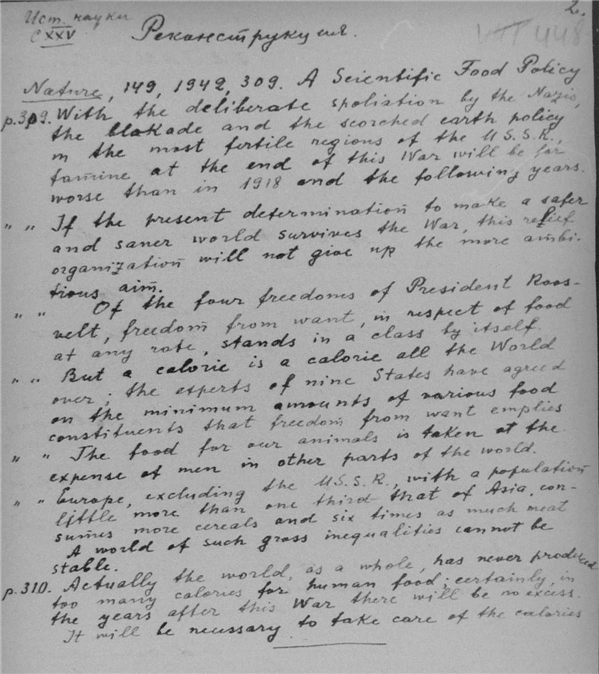 Ист. науки
CXXV
2.
VII 448
Реконструкция.
Nature, 149, 1942, 309. A Scientific Food Policy
p.309. With the deliberate spoliation by the Nazis,
the blakade and the scorched earth policy
in the most fertile regions of the U.S.S.R.,
famine at the end of this War will be far
worse than in 1918 and the following years.
" " If the present determination to make a safer
and saner world survives the War, this relief
organization will not give up the more ambi-
tious aim.
" " Of the four freedoms of President Roos-
velt, freedom from want, in respect of food
at any rate, stands in a class by itself.
" " But a calorie is a calorie all the World
over; the experts of nine States have agreed
on the minimum amounts of various food
constituents that freedom from want emplies
" " The food for our animals is taken at the
expense of men in other parts of the world.
" " Europe, excluding the U.S.S.R., with a population
little more than one third that of Asia, con-
sumes more cereals and six times as much meat
A world of such gross inequalities cannot be
stable.
p.310. Actually the world, as a whole, has never produced
too many calories for human food; certainly, in
the years after this War there will be no excess
It will be necessary to take care of the calories